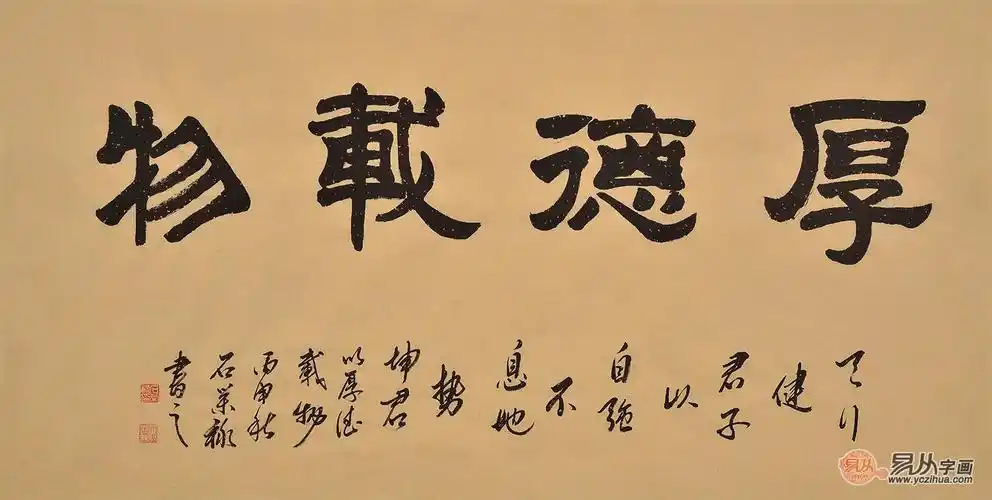 厚德載物
天行
健
君子
以
自強
不
息地
勢
坤君
以厚德
載物
丙申秋
石荣禄
書之
易从
易从字画
www.yczihua.com